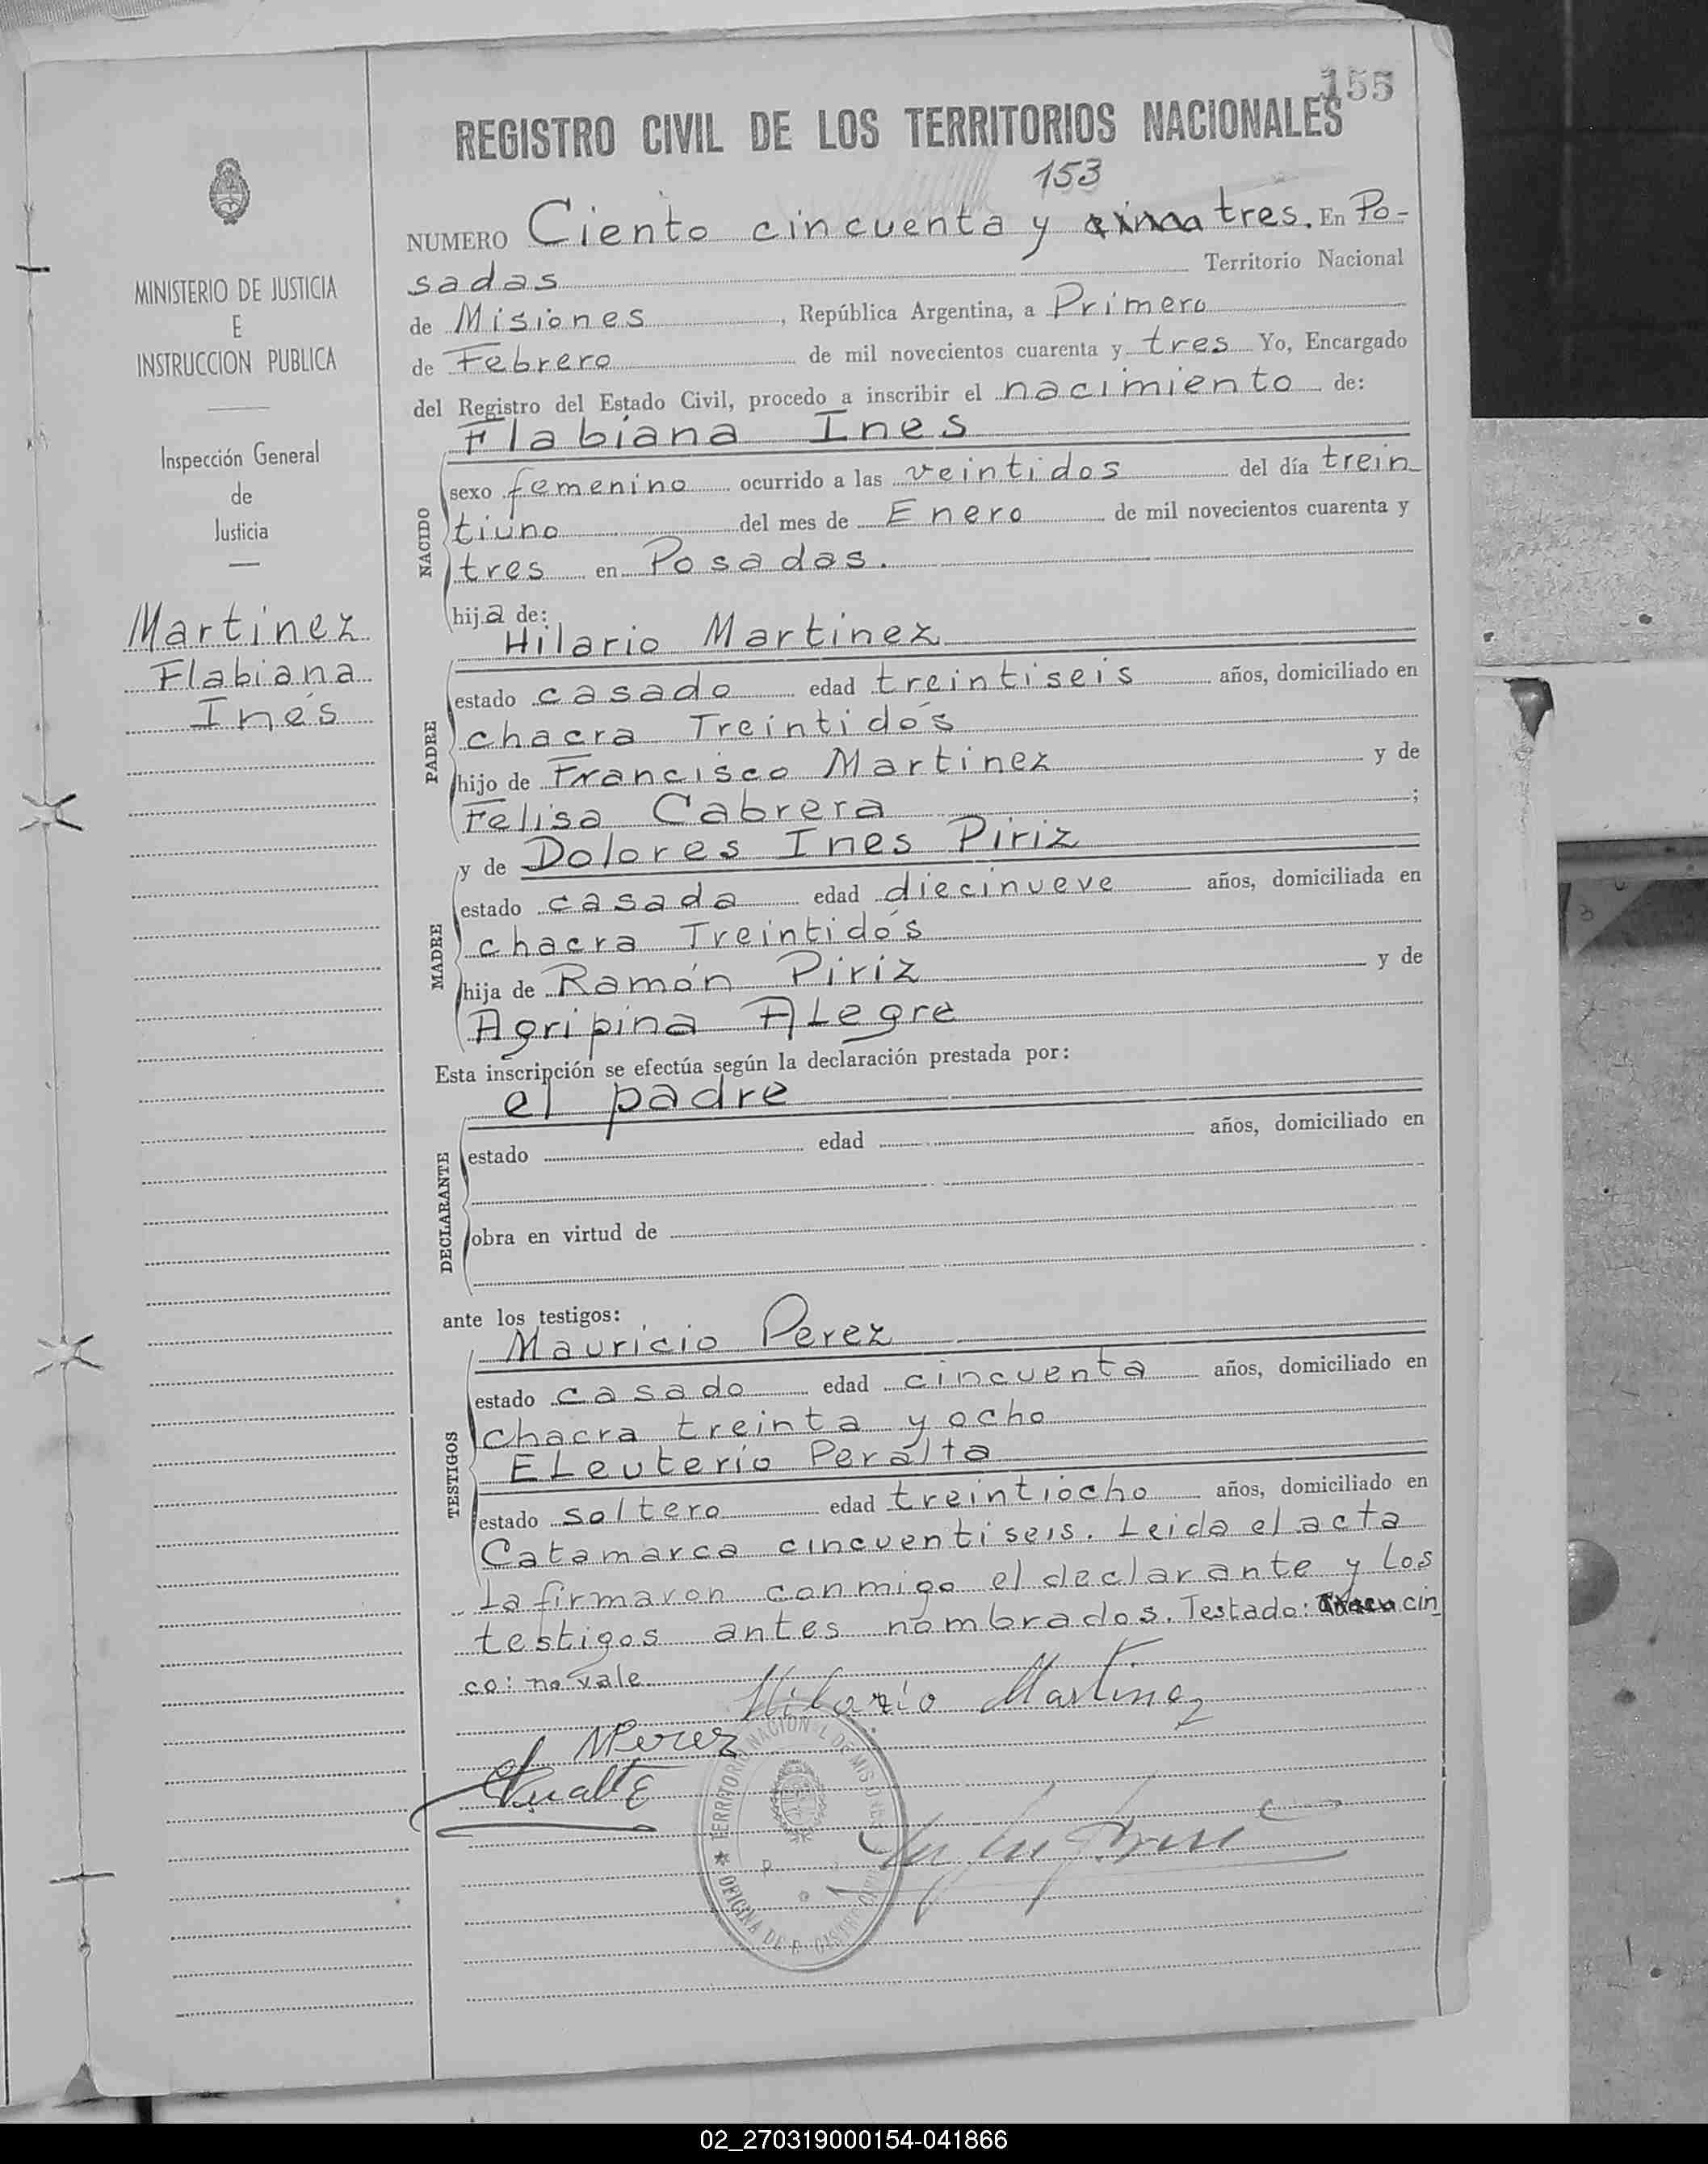 155
REGISTRO CIVIL DE LOS TERRITORIOS NACIONALES
153
NUMERO Ciento cincuenta y cinco tres. En Po-
sadas Territorio Nacional
de Misiones, República Argentina, a Primero
de Febrero de mil novecientos cuarenta y tres Yo, Encargado
del Registro del Estado Civil, procedo a inscribir el nacimiento de:
Flabiana Ines
NACIDO
sexo femenino ocurrido a las veintidos del día trein
tiuno del mes de Enero de mil novecientos cuarenta y
tres en Posadas.
hija de:
Hilario Martinez
PADRE
estado casado edad treintiseis años, domiciliado en
chacra Treintidós
hijo de Francisco Martinez y de
Felisa Cabrera;
y de Dolores Ines Piriz
MADRE
estado casada edad diecinueve años, domiciliada en
chacra Treintidós
hija de Ramón Piriz y de
Agripina ALegre
Esta inscripción se efectúa según la declaración prestada por:
el padre
DECLARANTE
estado edad años, domiciliado en
obra en virtud de
ante los testigos:
Mauricio Perez
TESTIGOS
estado casado edad cincuenta años, domiciliado en
chacra treinta y ocho
ELeuterio Peralta
estado soltero edad treintiocho años, domiciliado en
Catamarca cincuentiseis. Leida el acta
La firmaron conmigo el declarante y Los
testigos antes nombrados. Testado: cin
co: no vale
Hilario Martinez
MPerez
TERRITORIO NACIONAL DE MISIONES
OFICINA DE REGISTRO CIVIL
MINISTERIO DE JUSTICIA
E
INSTRUCCION PUBLICA
Inspección General
de
Justicia
Martinez
Flabiana
Inés
02_270319000154-041866